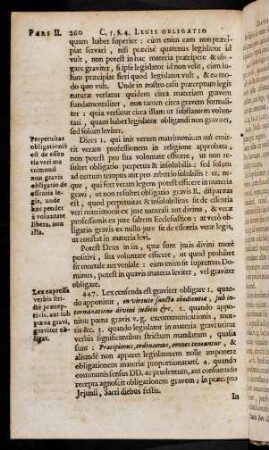 PARS II. 260 C. 5. §. 4. LEGIS OBLIGATIO
quam habet superior: cum enim eam non præci-
piat servari, nisi præcisè quatenus legislator id
vult, non potest in hac materia præcipere & ob-
gare graviter, si ipse legislator id non velit, cum so-
lum præcipiat fieri quod legislator vult, & eo mo-
do quo vult. Unde in nostro casu præceptum legis
naturæ versatur quidem circa materiam gravem
fundamentaliter, non tamen circa gravem formali-
ter: quia versatur circa illam ut substantem volun-
tati, quam habet legislator obligandi non graviter,
sed solum leviter.
Perpetuitas
obligationis
est de essen-
tia veri ma-
trimonii
non gravis
obligatio de
essentia le-
gis, unde
hæc pendet
à voluntate
libera, non
illa.
Dices 1. qui init verum matrimonium aut emit-
tit veram professionem in religione approbata,
non potest pro sua voluntate efficere, ut ex non re-
sultet obligatio perpetua & indissolubilis; sed solum
ad certum tempus aut pro arbitrio solubilis?
que, qui fert veram legem potest efficere in materia
gravi, ut ex non resultet obligatio gravis
est, quod perpetuitas & indissolubilitas sit de essentia
veri matrimonii ex jure naturali aut divino, & veræ
professionis ex jure saltem Ecclesiastico: at verò ob-
ligatio gravis ex nullo jure sit de essentia veræ legis,
ut constat in materia levi.
Potest Deus in iis, quæ sunt juris divini merè
positivi, sua voluntate efficere, ut quod prohibet
sit mortale aut veniale: cum enim sit supremus Do-
minus, potest in quavis materia leviter, vel graviter
obligare.
Lex expressa
verbis stri-
ctè præcep-
tivis, aut sub
pœna gravi,
graviter ob-
ligat.
447. Lex censenda est graviter obligare 1. quan-
do apponitur, in virtute sanctæ obedientiæ, sub in-
terminatione divini judicii &c. 2. quando appo-
nitur pœna gravis v. g. excommunicationis, mor-
tis &c. 3. quando legislator in materia gravi utitur
verbis significantibus strictum mandatum, qualia
sunt: Præcipimus, ordinamus, omnes teneantur, &
aliunde non apparet legislatorem nolle imponere
obligationem materiæ proportionatam. 4. quando
communis sensus DD. ac prudentum, aut consuetudo
recepta agnoscit obligationem gravem; in præcepto
Jejunii, Sacri diebus festis.
In